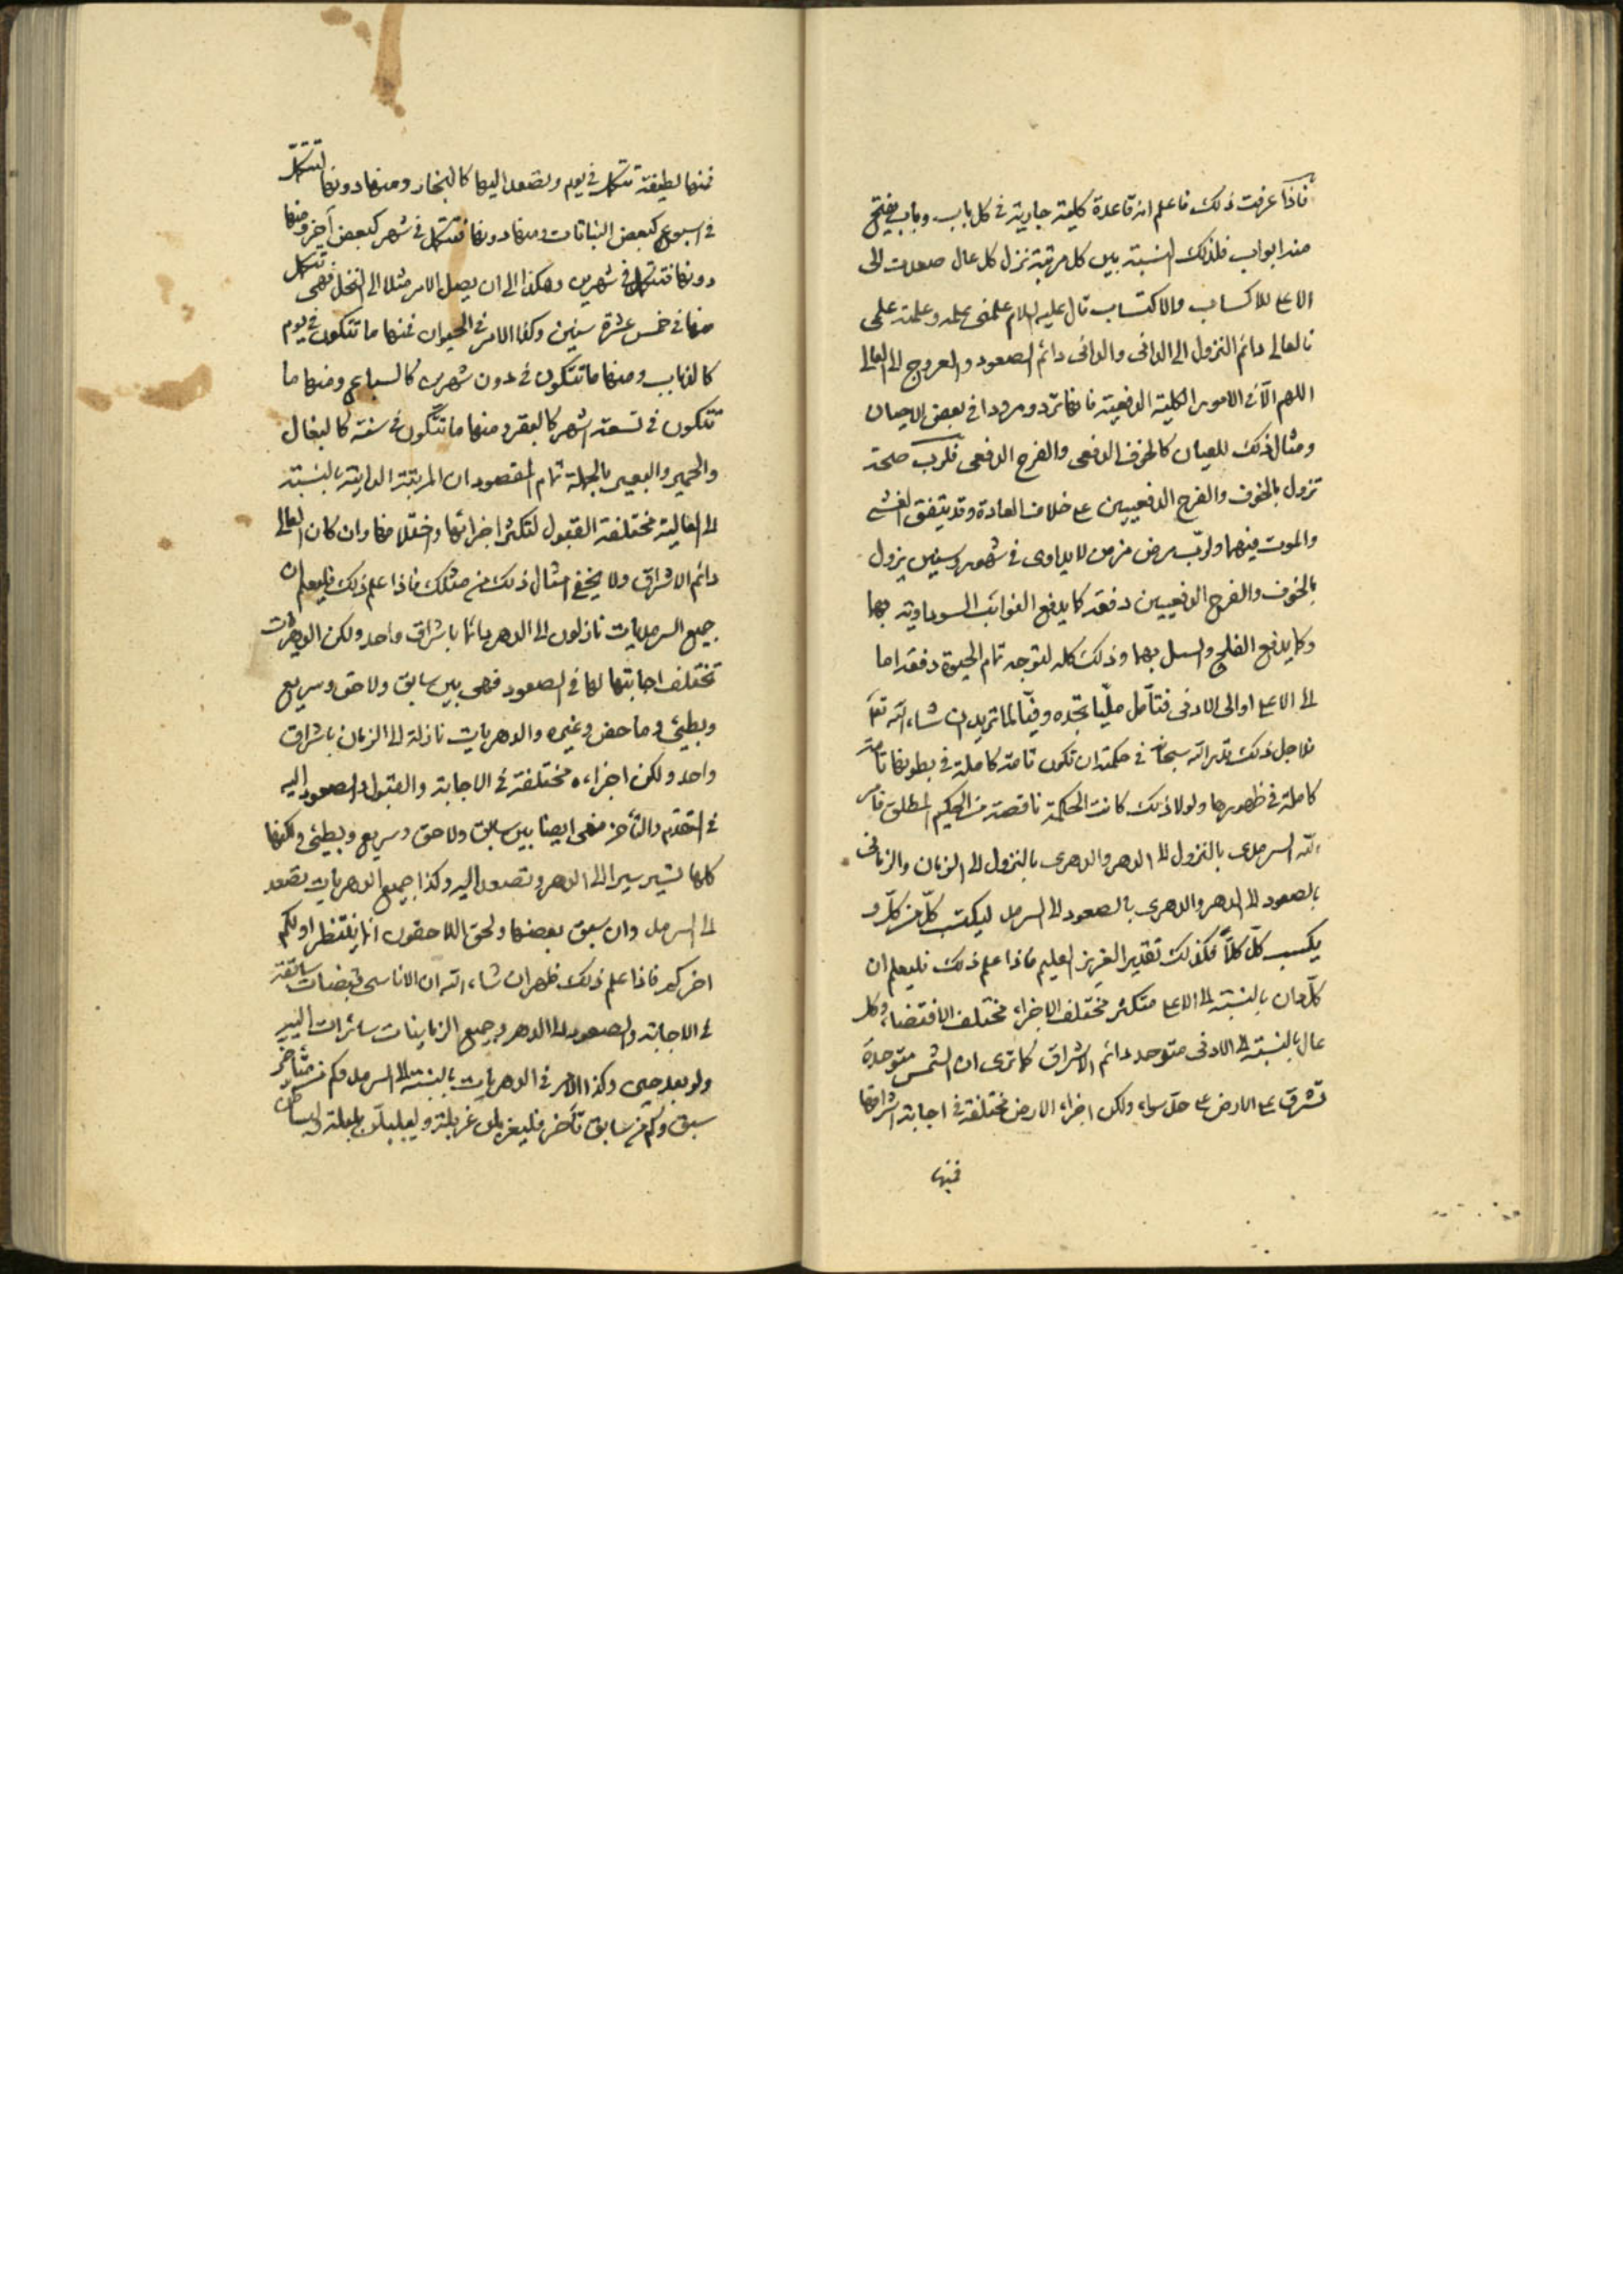 فاذا عرفت ذلك فاعلم انه قاعدة كلية جارية في كل باب وباب يفتح
منه ابواب فلذلك النسبة بين كل مرتبة نزل كل عال صعدت الى
الاعلى للاكساب والاكتساب قال عليه السلام علمنى علمه وعلمته علمى
فالعالى دائم النزول الى الدانى والدانى دائم الصعود والعروج الى العالى
اللهم الا فى الامور الكلية الدفعية فانها ترد ومردا في بعض الاحيان
ومثال ذلك للعيان كالخوف الدفعى والفرح الدفعى فلرب صحة
تزول بالخوف والفرح الدفعيين على خلاف العادة وقد يتفق الغشى
والموت فيهما ولرب مرض مزمن لا يداوى فى شهور وسنين يزول
بالخوف والفرح الدفعيين دفعة كما يدفع النوائب السوداوية بهما
وكما يدفع الفلج والسل بهما وذلك كله لتوجه تمام الحيوة دفعة اما
الى الاعلى او الى الادنى فتأمل مليا تجده وفيا لما تريد ان شاء الله تعا
فلاجل ذلك قدر الله سبحانه فى حكمته ان تكون تامة كاملة فى بطونها تامة
كاملة فى ظهورها ولولا ذلك كانت الحكمة ناقصة من الحكيم المطلق فامر
الله السرمدى بالنزول الى الدهر والدهرى بالنزول الى الزمان والزمانى
بالصعود الى الدهر والدهرى بالصعود الى السرمد ليكتسب كل من كل و
يكسب كل كلا فكذلك تقدير العزيز العليم فاذا علم ذلك فليعلم ان
كل دان بالنسبة الى الاعلى متكثر مختلف الاجزاء مختلف الاقتضاء وكل
عال بالنسبة الى الادنى متوحد دائم الاشراق كما ترى ان الشمس متوحدة
تشرق على الارض على حد سواء ولكن اجزاء الارض مختلفة فى اجابة اشراقها
فمنها
فمنها لطيفة تتكمل فى يوم وتصعد اليها كالبخار ومنها دونها تتكمل
فى اسبوع كبعض النباتات ومنها دونها فتتكمل فى شهر كبعض آخر ومنها
دونها فتتكمل فى شهرين وهكذا الى ان يصل الامر مثلا الى النخل فهى تتكمل
منها فى خمس عشرة سنين وكذا الامر فى الحيوان فمنها ما تتكون فى يوم
كالذباب ومنها ما تتكون فى دون شهرين كالسباع ومنها ما
تتكون فى تسعة اشهر كالبقر ومنها ما تتكون فى سنة كالبغال
والحمير والبعير بالجملة تمام المقصود ان المرتبة الدانية بالنسبة
الى العالية مختلفة القبول لتكثر اجزائها واختلافها وان كان العالى
دائم الاشراق ولا يخفى امثال ذلك من مثلك فاذا علم ذلك فليعلم ان
جميع السرمديات نازلون الى الدهر دائما باشراق واحد ولكن الدهريات
تختلف اجابتها لها فى الصعود فهى بين سابق ولاحق وسريع
وبطيئ وماحض وغيره والدهريات نازلة الى الزمان باشراق
واحد ولكن اجزاءه مختلفة فى الاجابة والقبول والصعود اليه
فى التقدم والتأخر فهى ايضا بين سابق ولاحق وسريع وبطيئ ولكنها
كلها تسير سيرا الى الدهر وتصعد اليه وكذا جميع الدهريات تصعد
الى السرمد وان سبق بعضها ولحق اللاحقون انما ينتظر اولكم
اخركم فاذا علم ذلك ظهر ان شاء الله ان الاناسى قبضات سابقة
فى الاجابة والصعود الى الدهر وجميع الزمانيات سائرات اليه
ولو بعد حين وكذا الامر فى الدهريات بالنسبة الى السرمد وكم من متأخر
سبق وكم من سابق تأخر فليغربلن غربلة وليبلبلن بلبلة